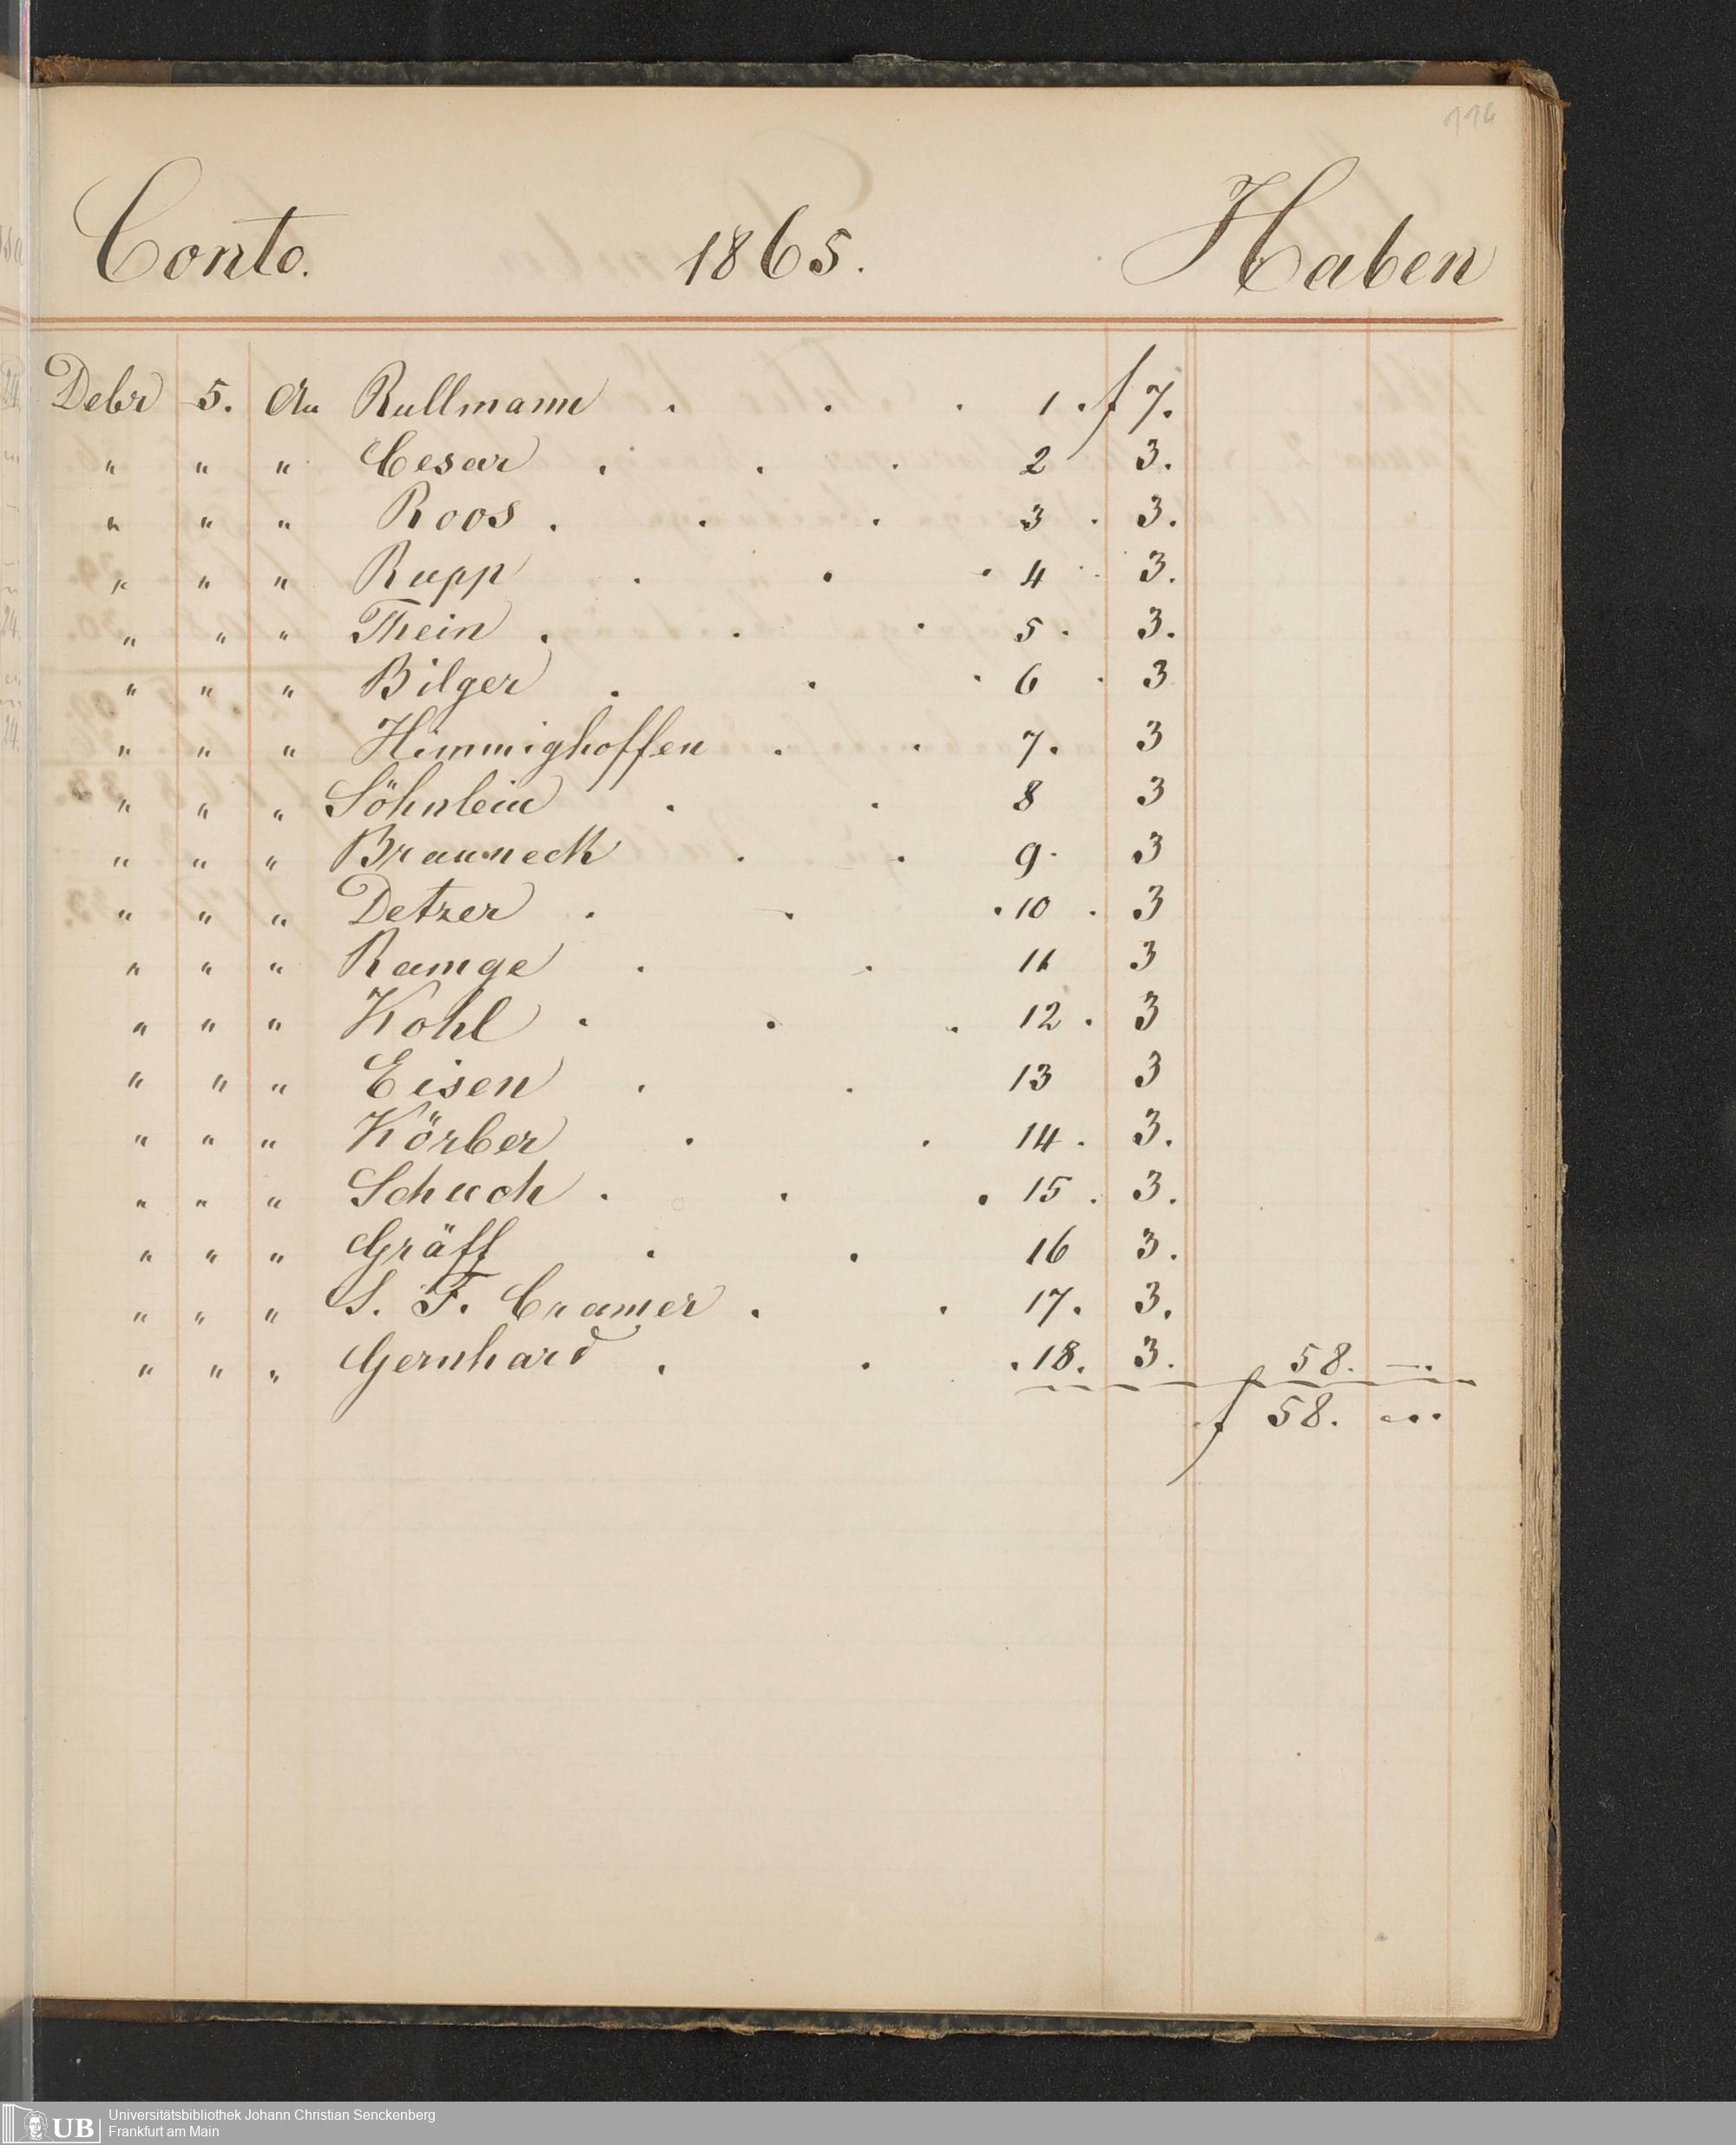 114
Conto. 1865. Haben
Debr 5. An Rullmann . . . 1. f 7.
" " " Cesar . . . 2 3.
" " " Roos . . . 3 . 3.
" " " Rupp . . . 4 . 3.
" " " Thein . . . 5 . 3.
" " " Bilger . . . 6 . 3
" " " Himmighoffen . . 7. 3
" " " Söhnlein . . 8 3
" " " Brauneck . . 9. 3
" " " Detzer . . . 10 . 3
" " " Ramge . . 11 3
" " " Kohl . . . 12 . 3
" " " Eisen . . 13 3
" " " Körber . . 14 . 3.
" " " Schuch . . . 15 . 3.
" " " Gräff . . 16 3.
" " " S. F. Cramer . . 17. 3.
" " " Gernhard . . . 18. 3. 58. —.
f 58. ...
UB Universitätsbibliothek Johann Christian Senckenberg
Frankfurt am Main